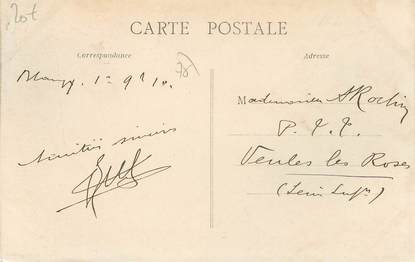 20t
CARTE POSTALE
Correspondance
Adresse
Blangy. 1er 9bre 10.
Amitiés
Mademoiselle A Rochin
P. T. T.
Veules les Roses
(Seine Infre)